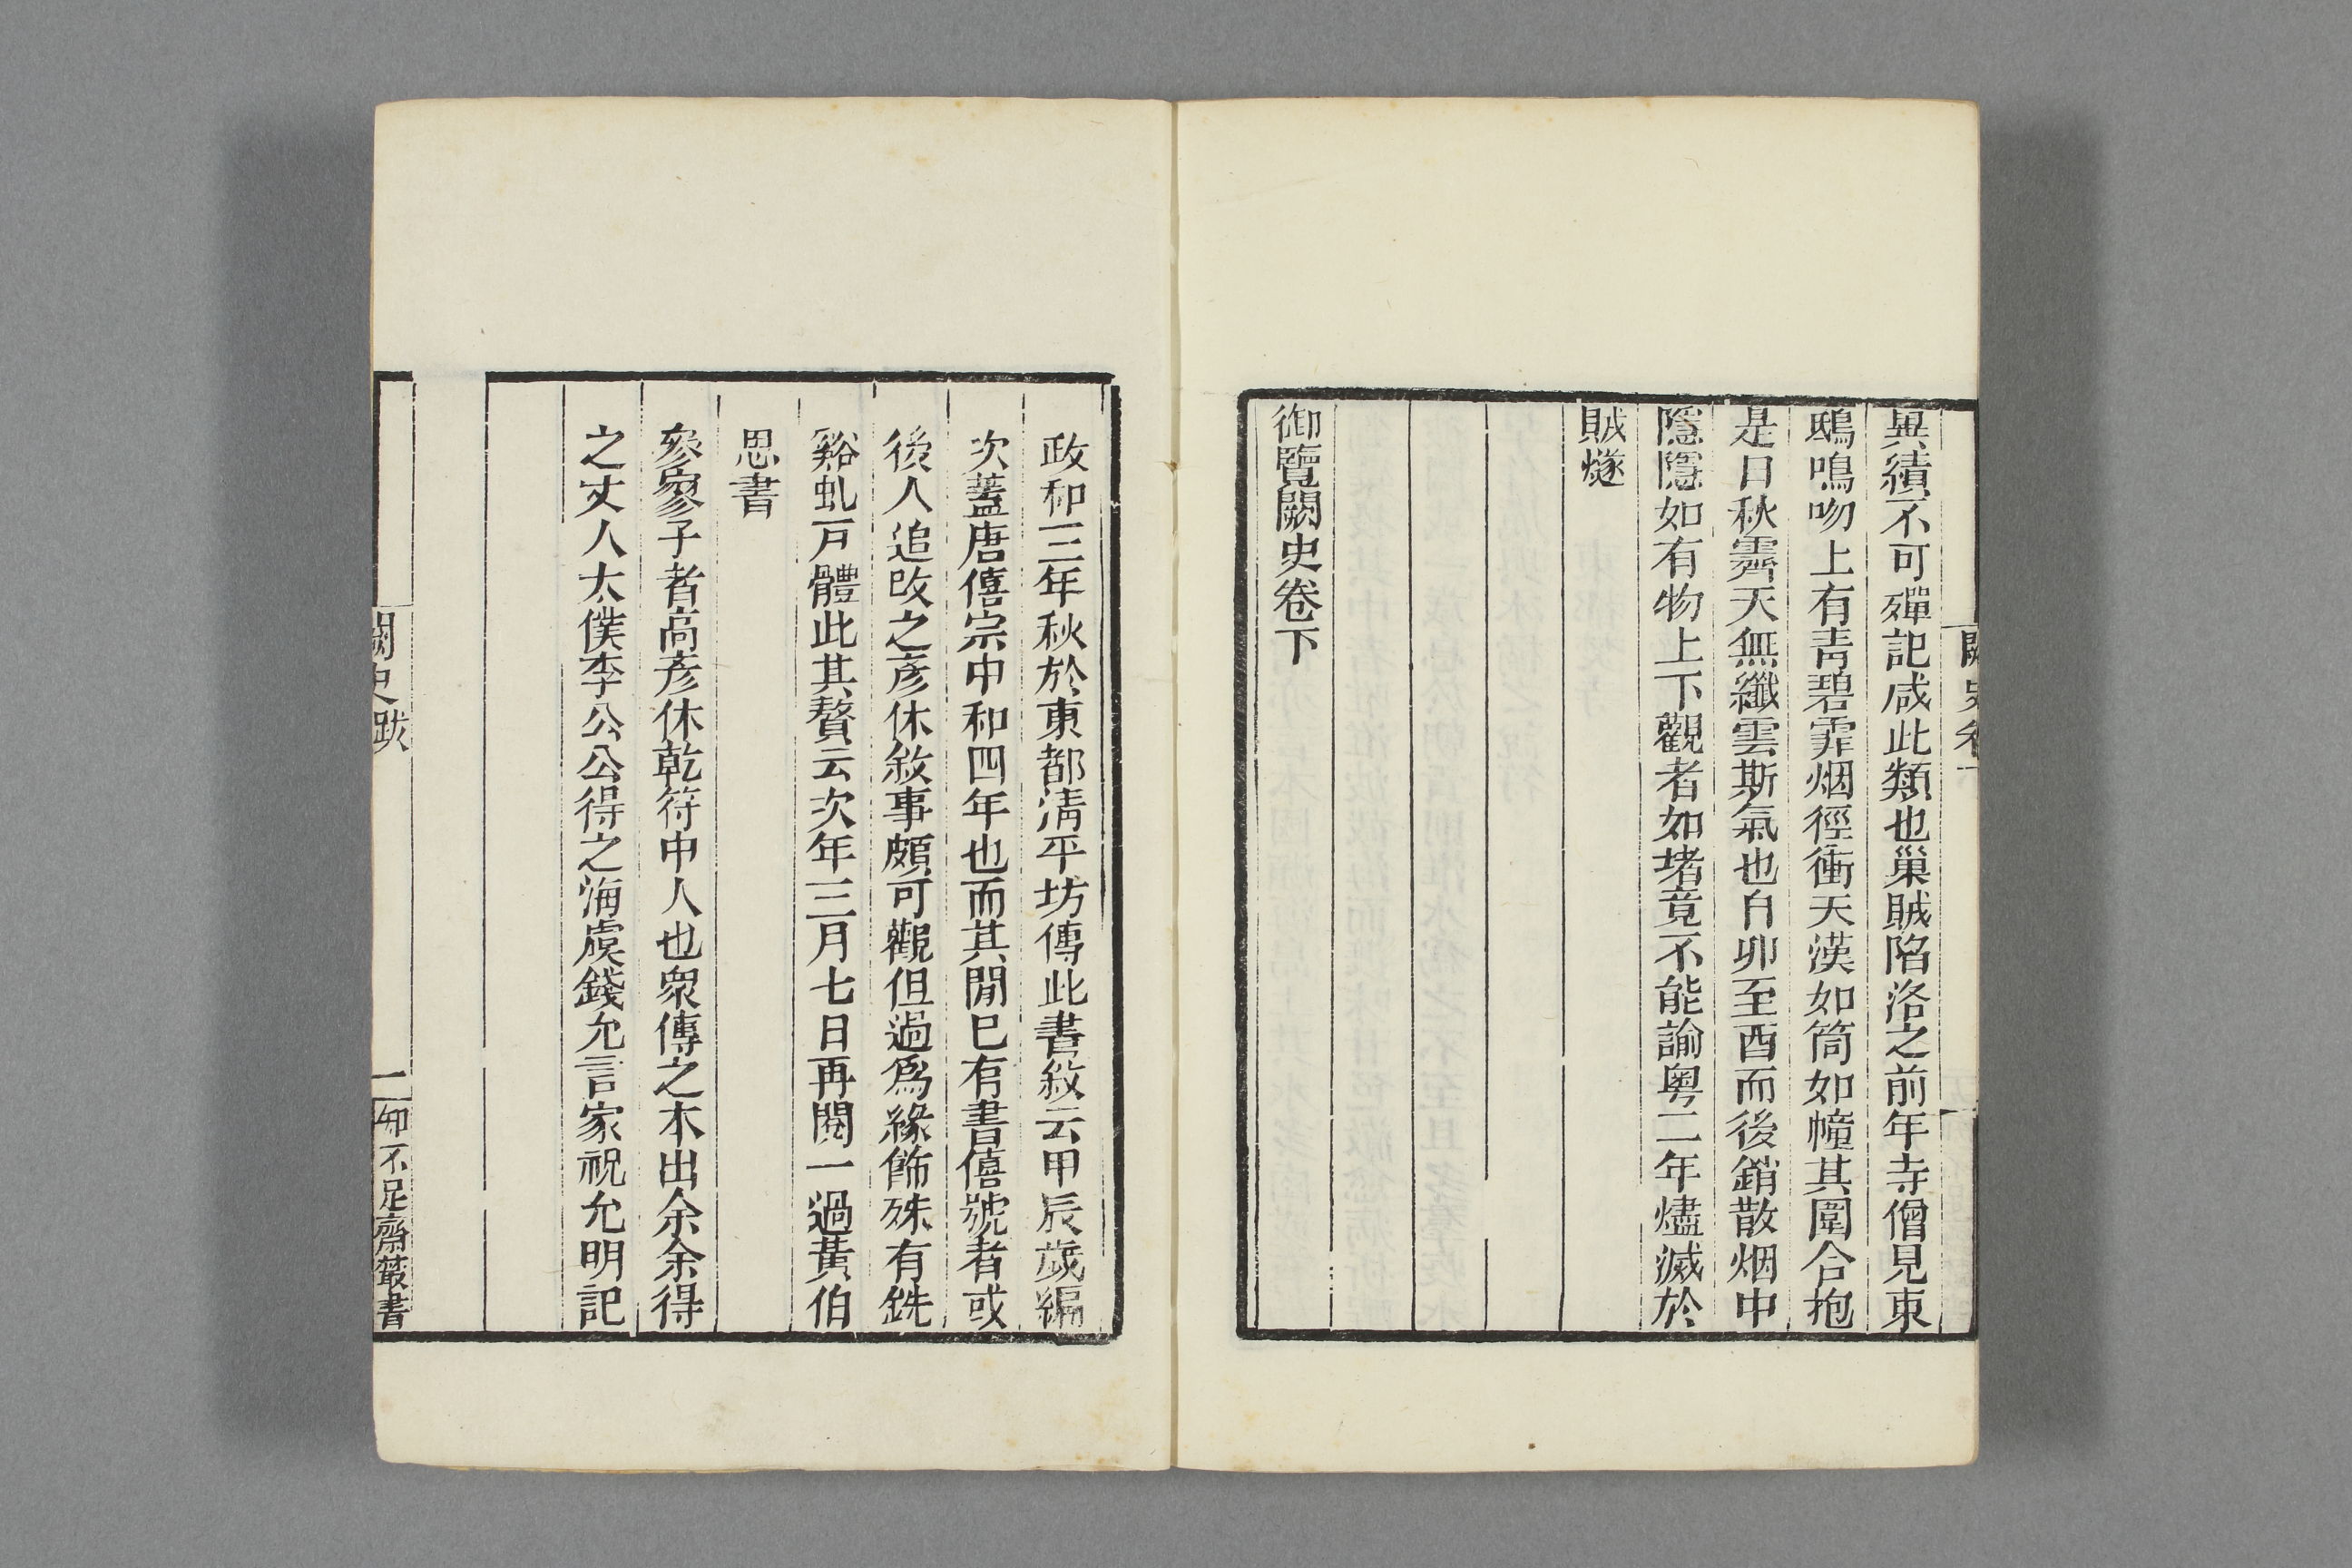 異績不可殫記咸此類也巢賊陷洛之前年寺僧見東
鴟鳴吻上有靑碧霏烟徑衝天漢如筒如幢其圍合抱
是日秋霽天無纖雲斯氣也自卯至酉而後銷散烟中
隱隱如有物上下觀者如堵竟不能諭粵二年燼滅於
賊燧
御覽闕史卷下
政和三年秋於東都淸平坊傳此書敘云甲辰歲編
次蓋唐僖宗中和四年也而其閒已有書僖號者或
後人追改之彦休敘事頗可觀但過爲緣飾殊有銑
谿虬戶體此其贅云次年三月七日再閱一過黃伯
思書
參寥子者高彦休乾符中人也衆傳之本出余余得
之丈人太僕李公公得之海虞錢允言家祝允明記
闕史跋
一
知不足齋叢書